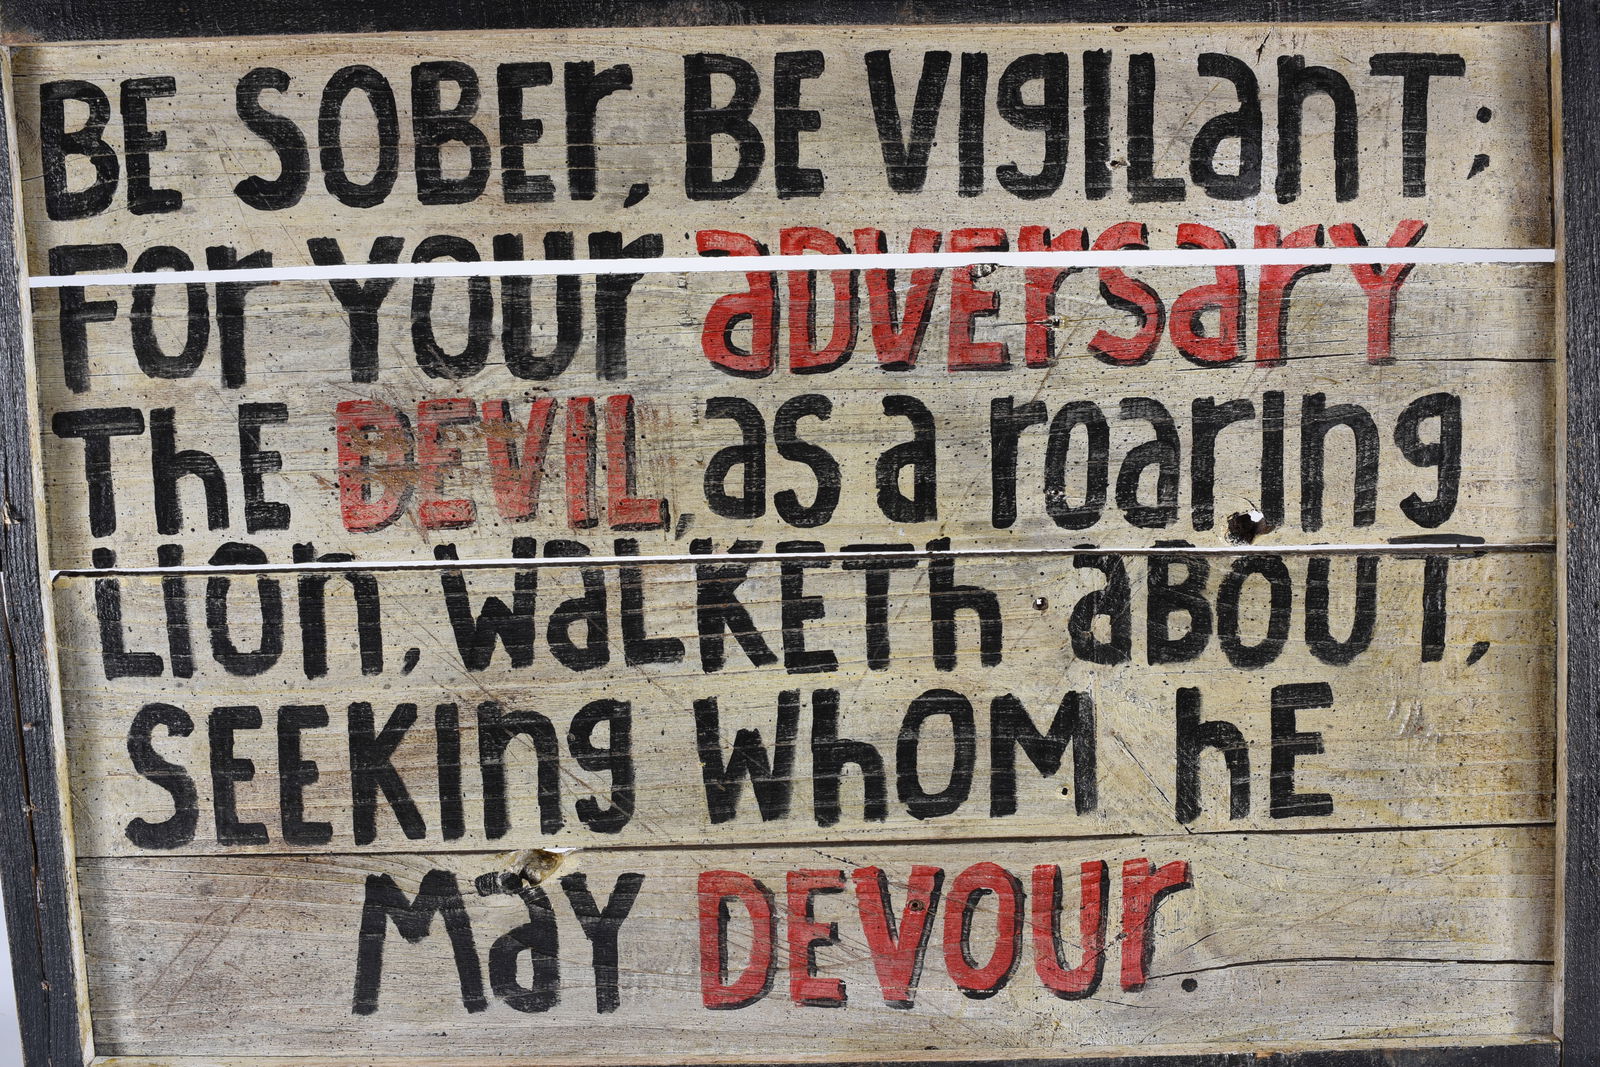 BE SOBEr, BE VIgILanT;
FOr YOUr aDVErSarY
ThE DEVIL, as a roarIng
LIOn, WaLKETh aBOUT,
SEEKIng WhOM hE
MaY DEVOUr.